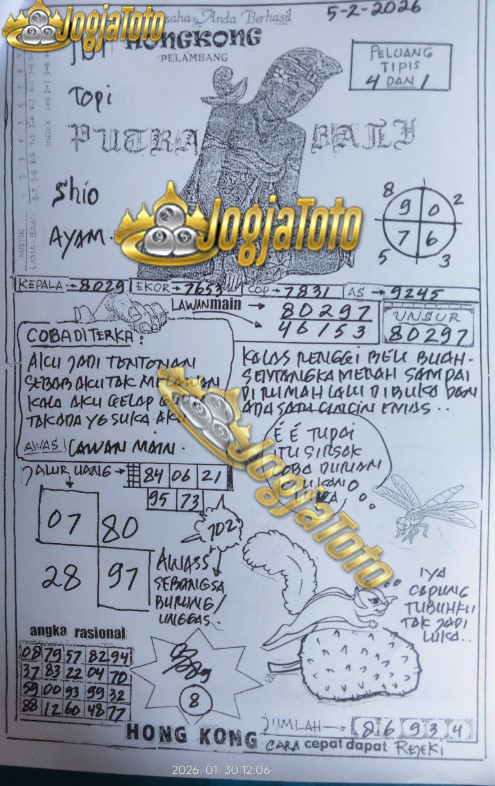 JogjaToto
saha Anda Berhasil
5-2-2026
HONGKONG
PELAMBANG
PELUANG
TIPIS
4 DAN 1
TOPI
PUTRA BALI
Shio
AYAM.
8 1 2
9 0
7 6
5 3
JogjaToto
KEPALA → 8029 EKOR → 7653 COP → 7831 AS → 9245
LAWAN main → 80297
46153
UNSUR
80297
COBA DI TERKA:
AKU JADI TONTONAN
SEBAB AKU TAK MELAWAN
KALA AKU GELAP
TAK ADA YG SUKA AKU
AWAS LAWAN MAIN.
KALAS PENGGI BELI BUAH-
SENTANGKA MERAH SAMPAI
DI RUMAH LALU DIBUKA DAN
ADA SATU CINCIN EMAS..
É É TUPAI
ITU SIRSAK
COBA DURIAN
JogjaToto
JALUR UANG → 84 06 21
95 73
07 80
28 97
702
AWASS
SEBANGSA
BURUNG/
UNGGAS.
IYA
CAPUNG
TUBUHKU
TAK JADI
LUKA..
angka rasional
08 79 57 82 94
37 83 22 04 70
59 00 93 99 32
88 12 60 48 77
89
8
JUMLAH → 8 6 9 3 4
HONG KONG CARA cepat dapat REJEKI
2026/01/30 12:06